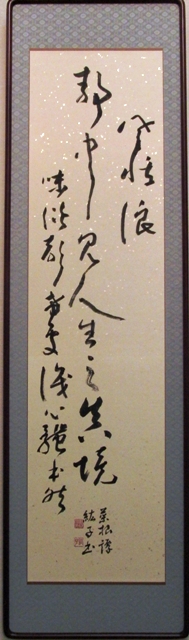 風恬浪
静中見人生之真境
味淡聲希處識心體本然
菜根譚
子書